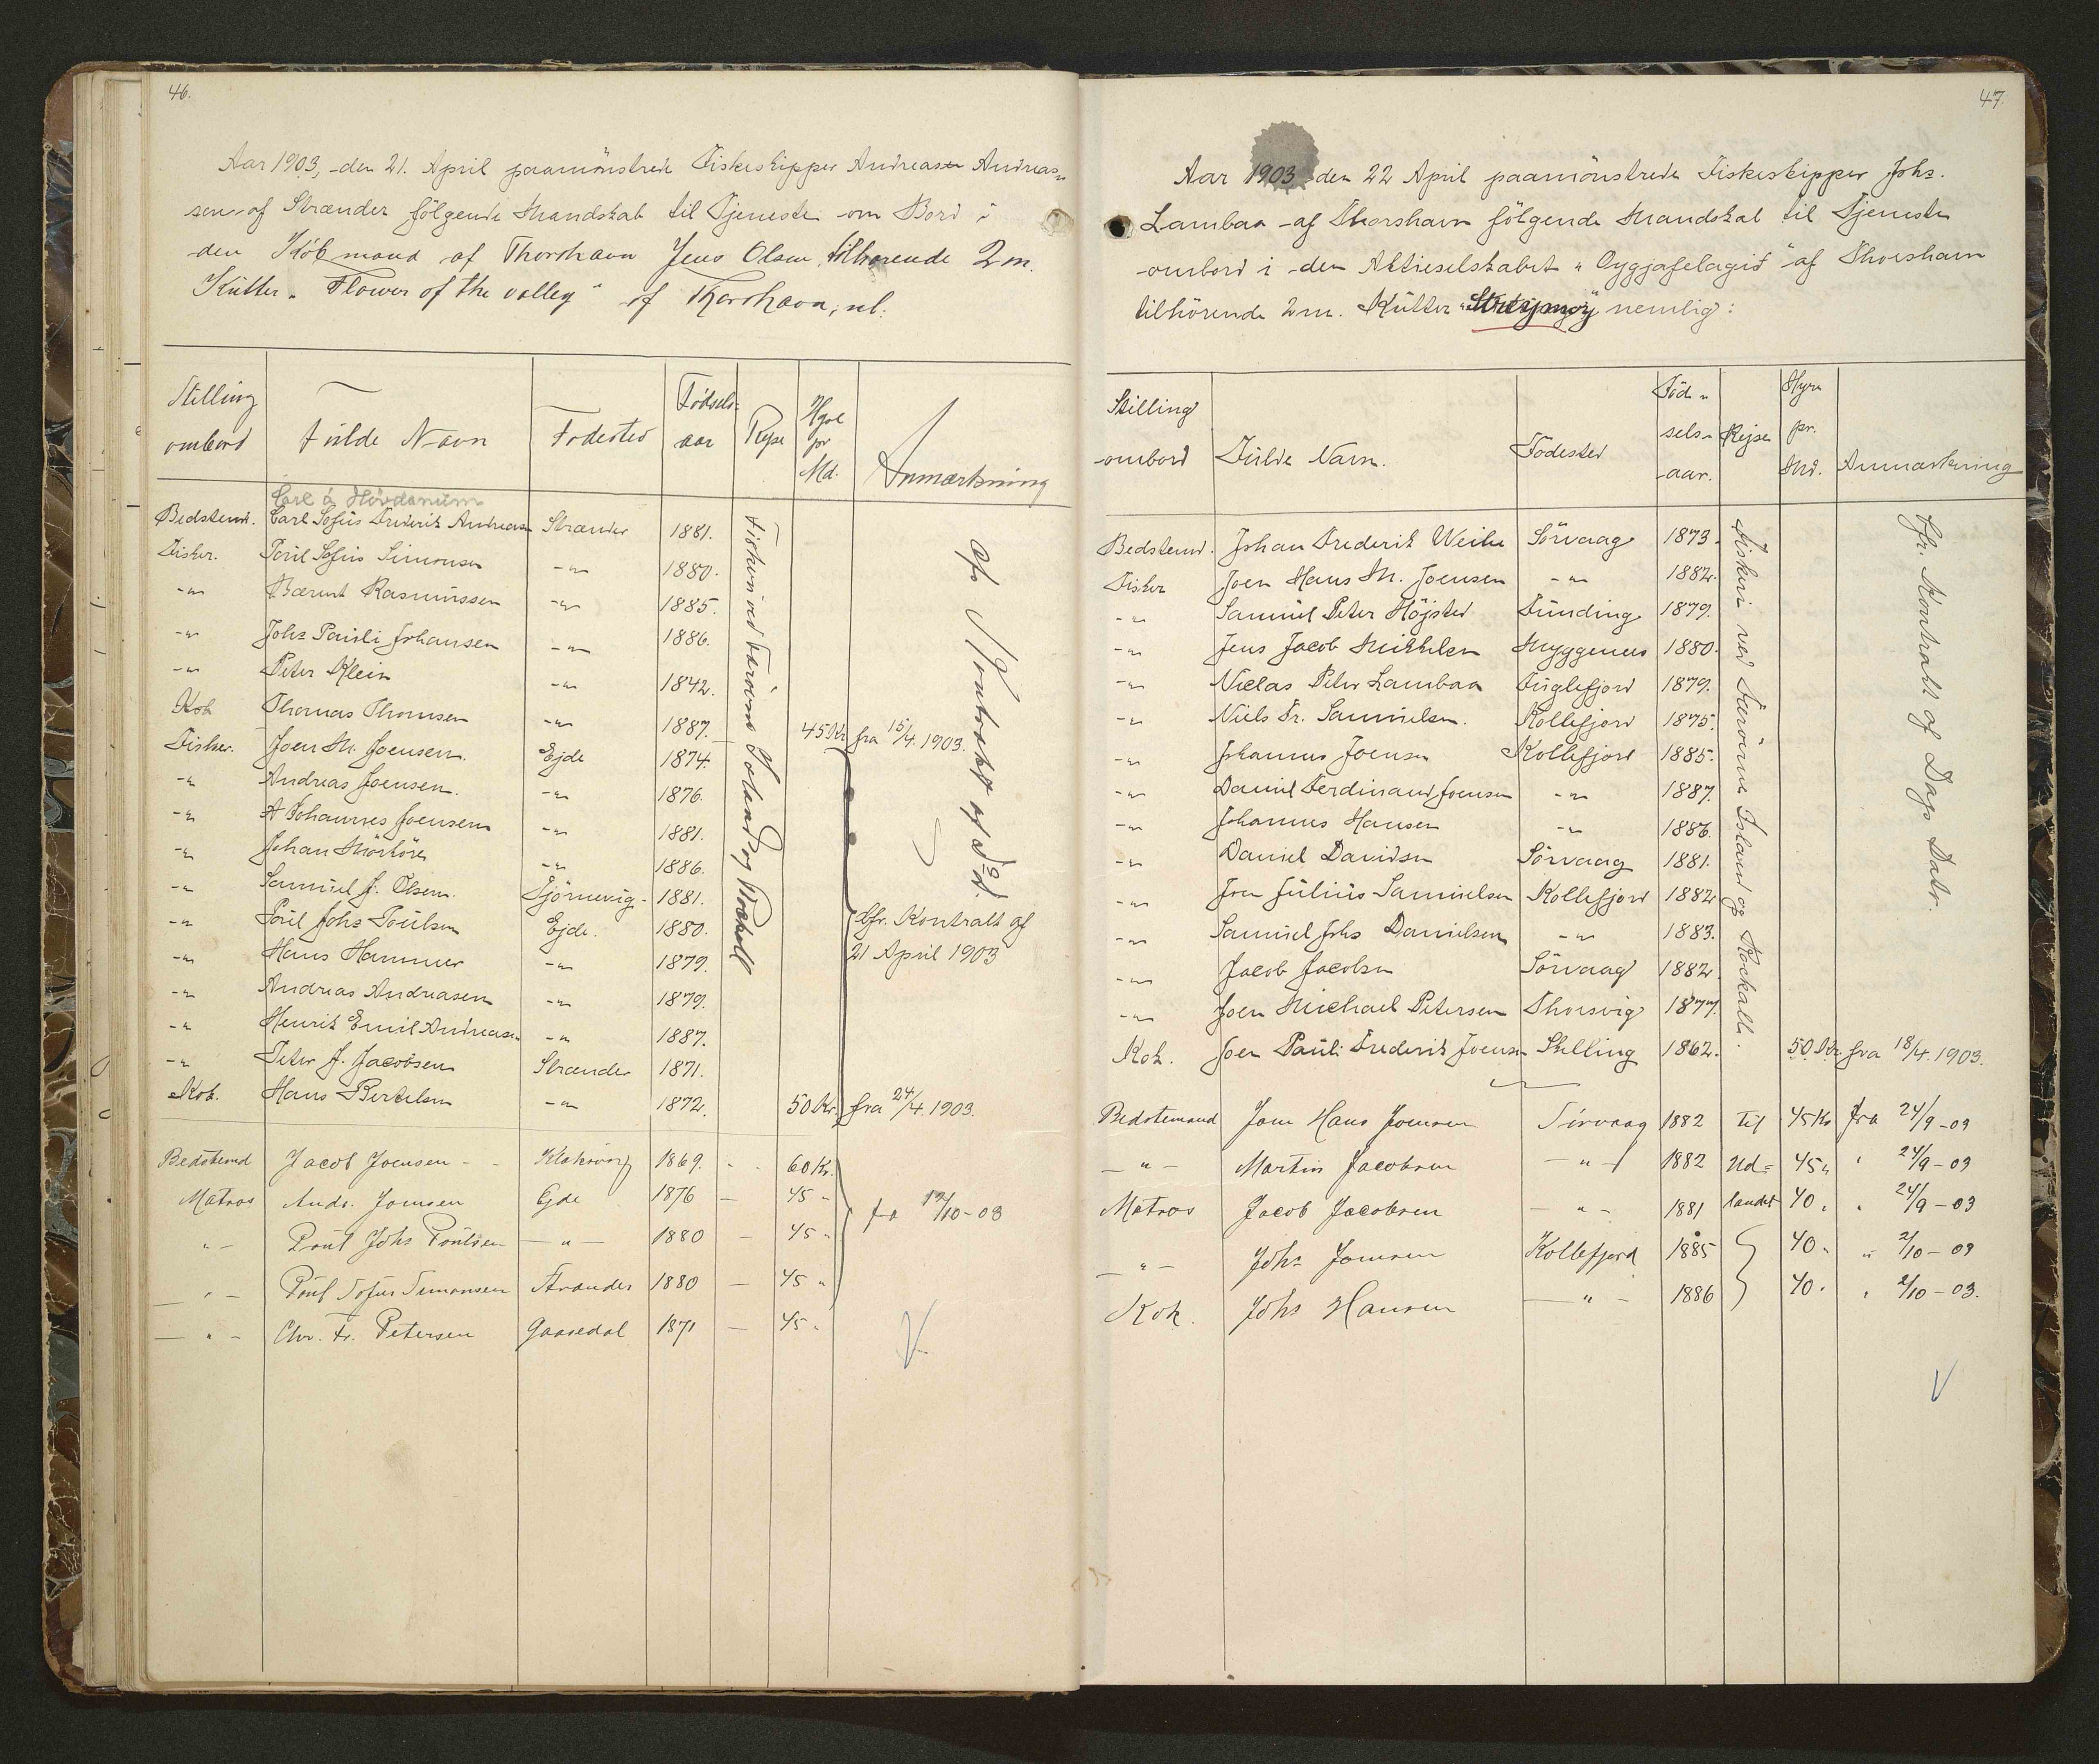 46.
Aar 1903, den 21. April paamönstrede Fiskeskipper Andreas Andreas-
sen af Strænder følgende Mandskab til Tjeneste om Bord i
den Købmand af Thorshavn Jens Olsen tilhørende 2 m.
Kutter "Flower of the valley" af Thorshavn, nl.
Stilling ombord
Fulde Navn
Fødested
Fødsels-aar
Rejse
Hyre pr Md.
Anmærkning
Carl á Hövdanum
Bedstemd. Carl Sofus Frederik Andreasen Strænder 1881.
Fisker. Poul Sofus Simonsen -"- 1880.
-"- Bærent Rasmussen -"- 1885.
-"- Johs Pauli Johansen -"- 1886.
-"- Peter Klein -"- 1842.
Kok Thomas Thomsen -"- 1887. 45 Kr fra 15/4. 1903.
Fisker. Joen M. Joensen. Ejde 1874.
-"- Andreas Joensen. -"- 1876.
-"- A Johannes Joensen -"- 1881.
-"- Johan Mörköre -"- 1886.
-"- Samuel J. Olsen. Tjörnevig 1881.
-"- Poul Johs Poulsen Ejde. 1880.
-"- Hans Hammer -"- 1879.
-"- Andreas Andreasen -"- 1879.
-"- Henrik Emil Andreasen -"- 1887.
-"- Peter J. Jacobsen Strænder 1871.
Kok. Hans Bertelsen -"- 1872. 50 Kr. fra 24/4. 1903.
Fiskeri ved Færöerne Island og Rockall
cfr Kontrakt af D.D.
Cfr. Kontrakt af
21 April 1903
Bedstemd Jacob Joensen - - Klaksvig 1869. - - 60 Kr.
Matros Andr. Joensen Ejde 1876 - 45 "
" - Poul Johs Poulsen - " - 1880 - 45 "
- " - Poul Sofus Simonsen Strænder 1880 - 45 "
- " - Chr. Fr. Petersen Gaasedal 1871 - 45 "
fra 12/10 - 03
47.
Aar 1903 den 22 April paamönstrede Fiskeskipper Johs.
Lambaa af Thorshavn fölgende Mandskab til Tjeneste
ombord i den Aktieselskabet "Oyggjafelagið" af Thorshavn
tilhörende 2 m. Kutter "Streymoy" nemlig:
Stilling ombord
Fulde Navn.
Födested
Föd-sels-aar.
Rejse
Hyre pr. Md.
Anmærkning
Bedstemd. Johan Frederik Weihe Sörvaag 1873.
Fisker Joen Hans M. Joensen -"- 1882.
-"- Samuel Peter Höjsted Funding 1879.
-"- Jens Jacob Mikkelsen Myggenæs 1880.
-"- Niclas Peter Lambaa Fuglefjord 1879.
-"- Niels Fr. Samuelsen. Kollefjord 1875.
-"- Johannes Joensen Kollefjord 1885.
-"- Daniel Ferdinand Joensen -"- 1887.
-"- Johannes Hansen -"- 1886.
-"- Daniel Davidsen Sörvaag 1881.
-"- Joen Julius Samuelsen Kollefjord 1882
-"- Samuel Johs Danielsen -"- 1883.
-"- Jacob Jacobsen Sörvaag 1882.
-"- Joen Michael Petersen Thorsvig 1877.
Kok. Joen Pauli Frederik Joensen Stelling 1862. 50 Kr. fra 18/4. 1903.
Fiskeri ved Færöerne Island og Rockall.
Cfr. Kontrakt af Dags Dato.
Bedstemand Joen Hans Joensen Sörvaag 1882 til 45 Kr fra 24/9 - 03
- " - Martin Jacobsen - " - 1882 Ud= 45 " " 24/9 - 03
Matros Jacob Jacobsen - " - 1881 landet 40 " " 24/9 - 03
- " - Johs Joensen Kollefjord 1885 40 " " 2/10 - 03
Kok. Johs Hansen - " - 1886 40 " " 2/10 - 03.